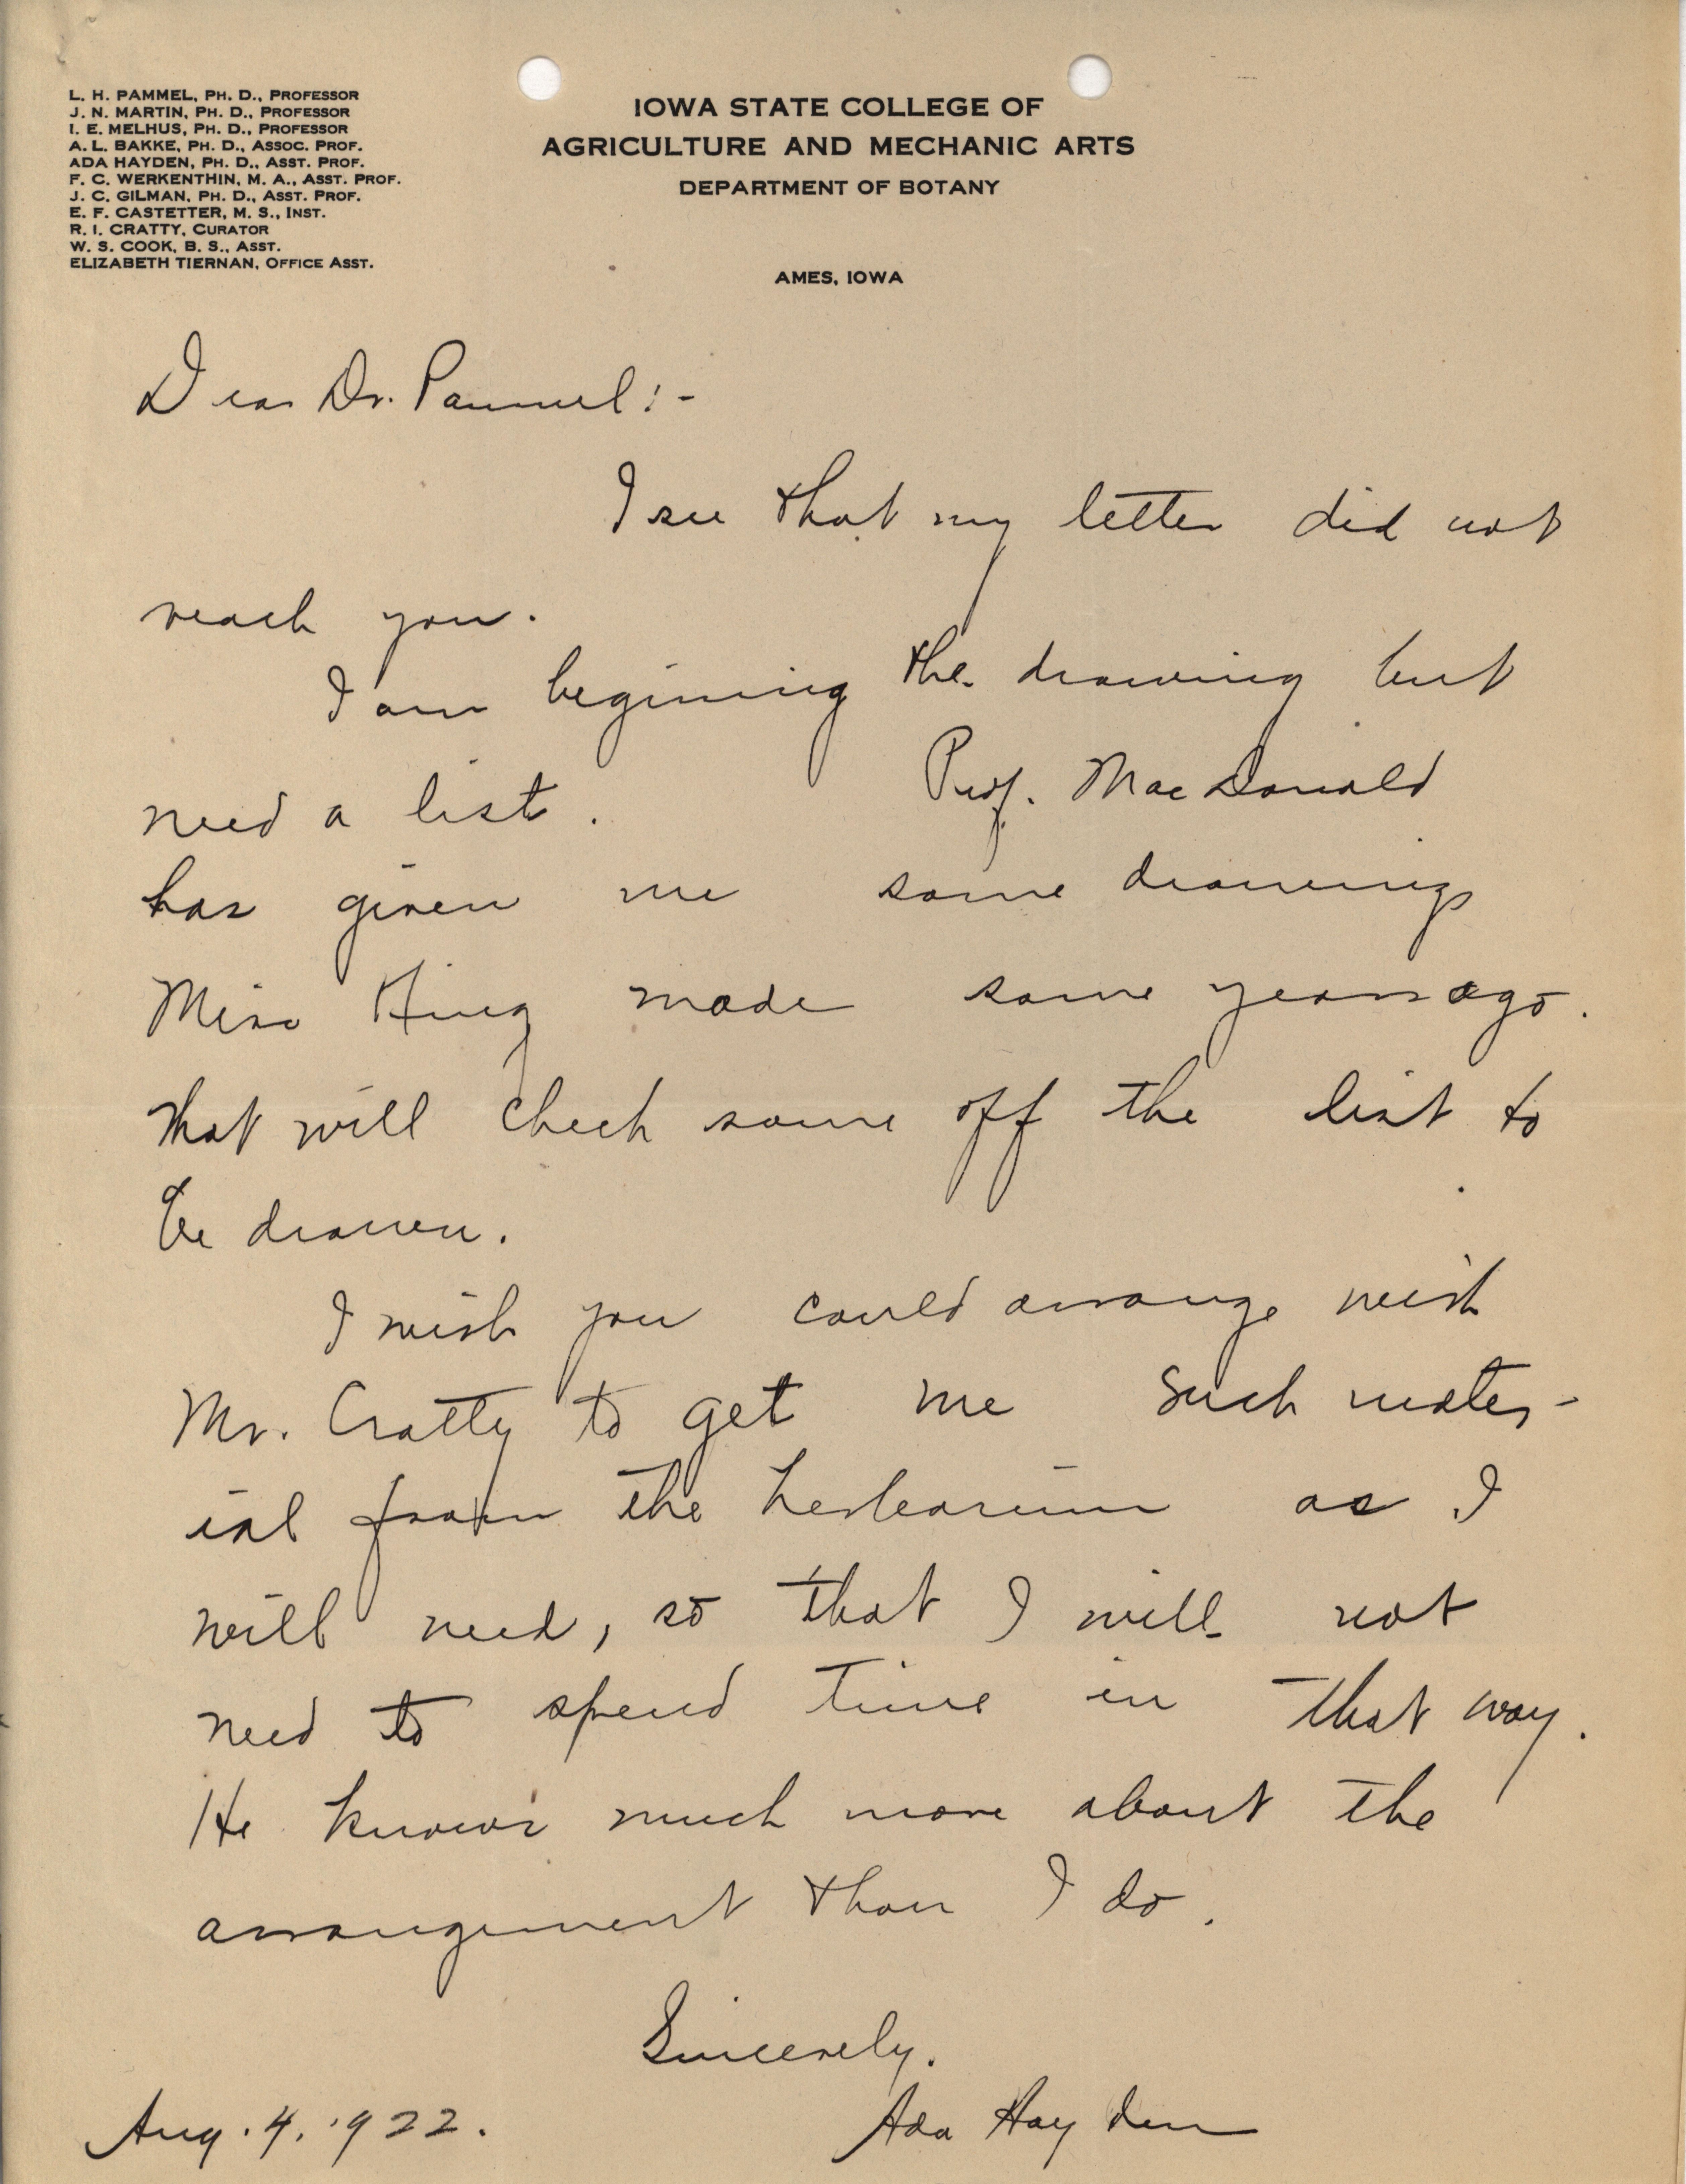 L. H. PAMMEL, PH. D., PROFESSOR
J. N. MARTIN, PH. D., PROFESSOR
I. E. MELHUS, PH. D., PROFESSOR
A. L. BAKKE, PH. D., ASSOC. PROF.
ADA HAYDEN, PH. D., ASST. PROF.
F. C. WERKENTHIN, M. A., ASST. PROF.
J. C. GILMAN, PH. D., ASST. PROF.
E. F. CASTETTER, M. S., INST.
R. I. CRATTY, CURATOR
W. S. COOK, B. S., ASST.
ELIZABETH TIERNAN, OFFICE ASST.
IOWA STATE COLLEGE OF
AGRICULTURE AND MECHANIC ARTS
DEPARTMENT OF BOTANY
AMES, IOWA
Dear Dr. Pammel:-
I see that my letter did not
reach you.
I am begining the drawing but
need a list. Prof. MacDonald
has given me some drawings
Miss King made some years ago.
that will check some off the list to
be drawn.
I wish you could arrange with
Mr. Cratty to get me such mater-
ial from the herbarium as I
will need, so that I will not
need to spend time in that way.
He knows much more about the
arrangement than I do.
Sincerely.
Ada Hayden
Aug. 4, 1922.